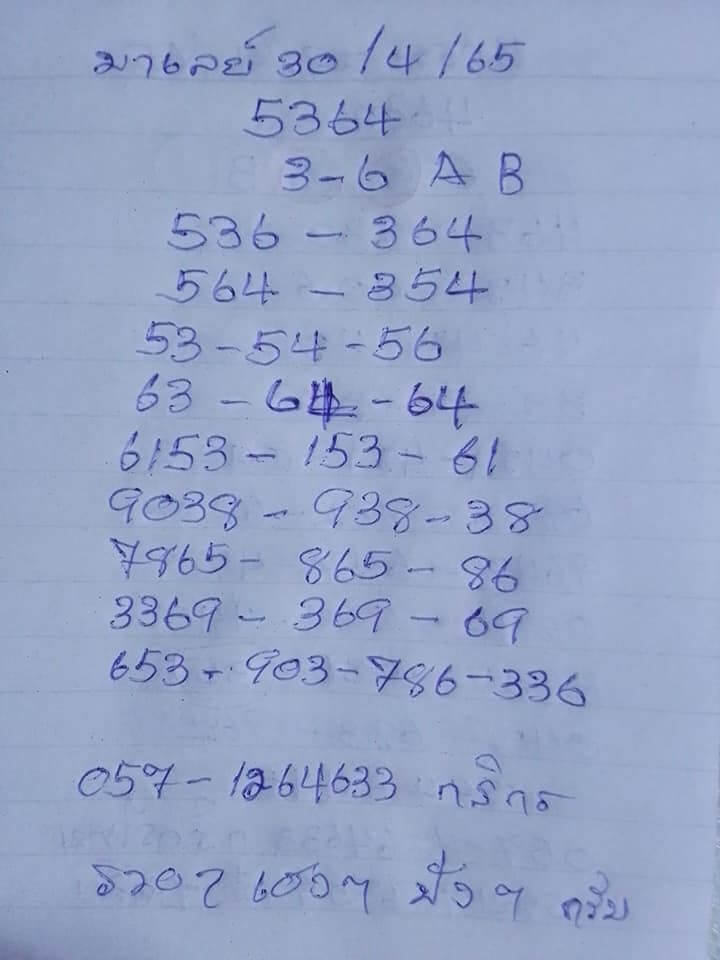 มาเลย์ 30/4/65
5364
3-6 A B
536 - 364
564 - 354
53-54-56
63 - 64 - 64
6153 - 153 - 61
9038 - 938 - 38
7865 - 865 - 86
3369 - 369 - 69
653 - 903 - 786 - 336
057-1264633 กสิกร
รวยๆ เฮงๆ ปังๆ ครับ